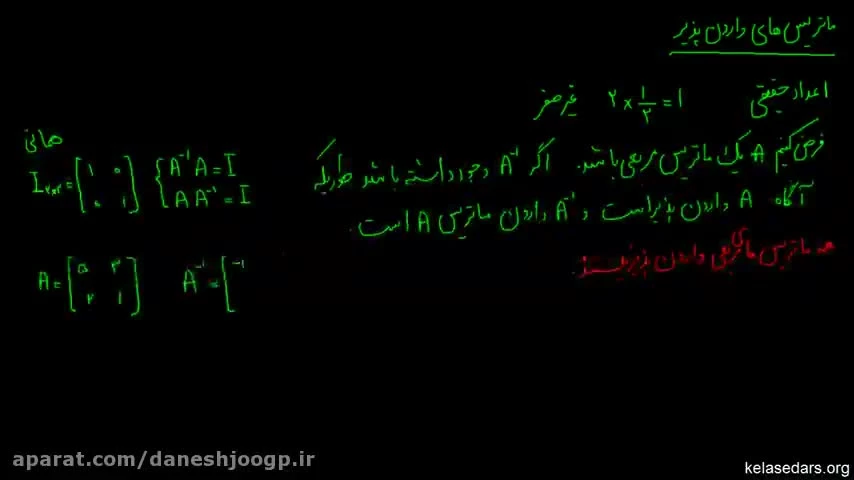 ماتریس های وارون پذیر
اعداد حقیقی ۲ × ۱/۲ = ۱ غیر صفر
فرض کنیم A یک ماتریس مربعی باشد. اگر A⁻¹ وجود داشته باشد طوریکه
همانی
I₂ₓ₂ = [۱ ۰; ۰ ۱] { A⁻¹A = I
AA⁻¹ = I
آنگاه A وارون پذیر است و A⁻¹ وارون ماتریس A است.
همه ماتریس های مربعی وارون پذیر نیستند.
A = [۵ ۳; ۲ ۱] A⁻¹ = [-۱
aparat.com/daneshjoogp.ir
kelasedars.org